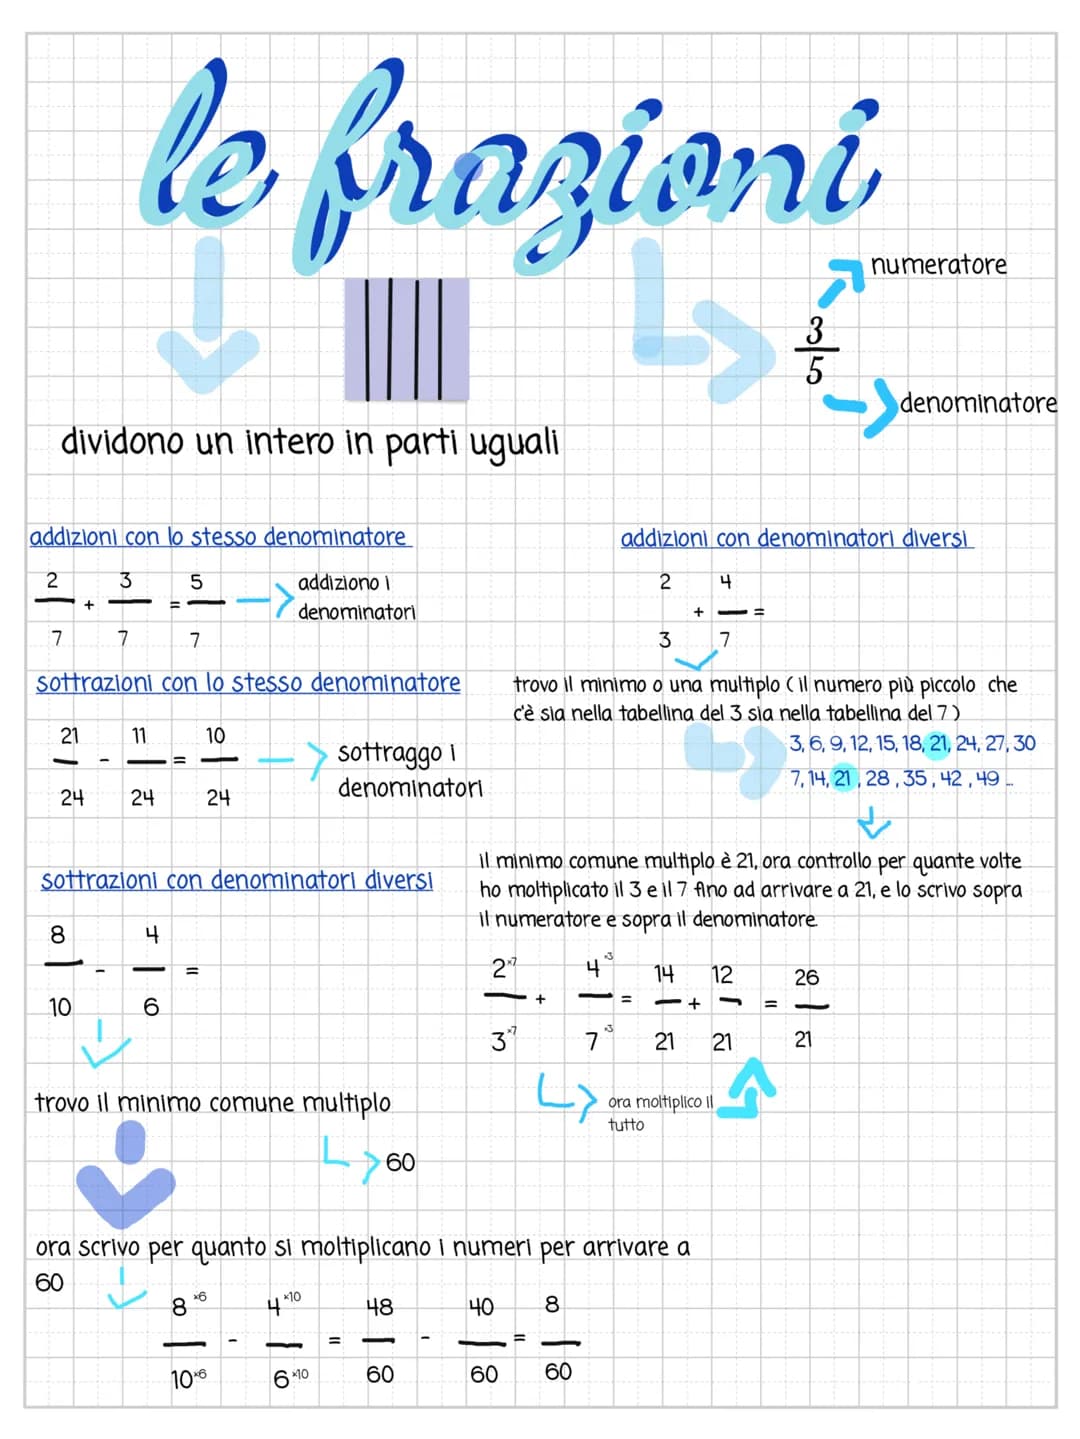 le frazioni
numeratore
3
5
denominatore
dividono un intero in parti uguali
addizioni con lo stesso denominatore
2 3 5
+ =
7 7 7
addiziono i
denominatori
sottrazioni con lo stesso denominatore
21 11 10
- =
24 24 24
sottraggo i
denominatori
addizioni con denominatori diversi
2 4
+ =
3 7
trovo il minimo o una multiplo ( il numero più piccolo che
c'è sia nella tabellina del 3 sia nella tabellina del 7 )
3, 6, 9, 12, 15, 18, 21, 24, 27, 30
7, 14, 21 , 28 , 35 , 42 , 49 ...
il minimo comune multiplo è 21, ora controllo per quante volte
ho moltiplicato il 3 e il 7 fino ad arrivare a 21, e lo scrivo sopra
il numeratore e sopra il denominatore.
2 ×7 4 ×3 14 12 26
+ = + =
3 ×7 7 ×3 21 21 21
ora moltiplico il
tutto
sottrazioni con denominatori diversi
8 4
- =
10 6
trovo il minimo comune multiplo
60
ora scrivo per quanto si moltiplicano i numeri per arrivare a
60
8 ×6 4 ×10 48 40 8
- = - =
10 ×6 6 ×10 60 60 60